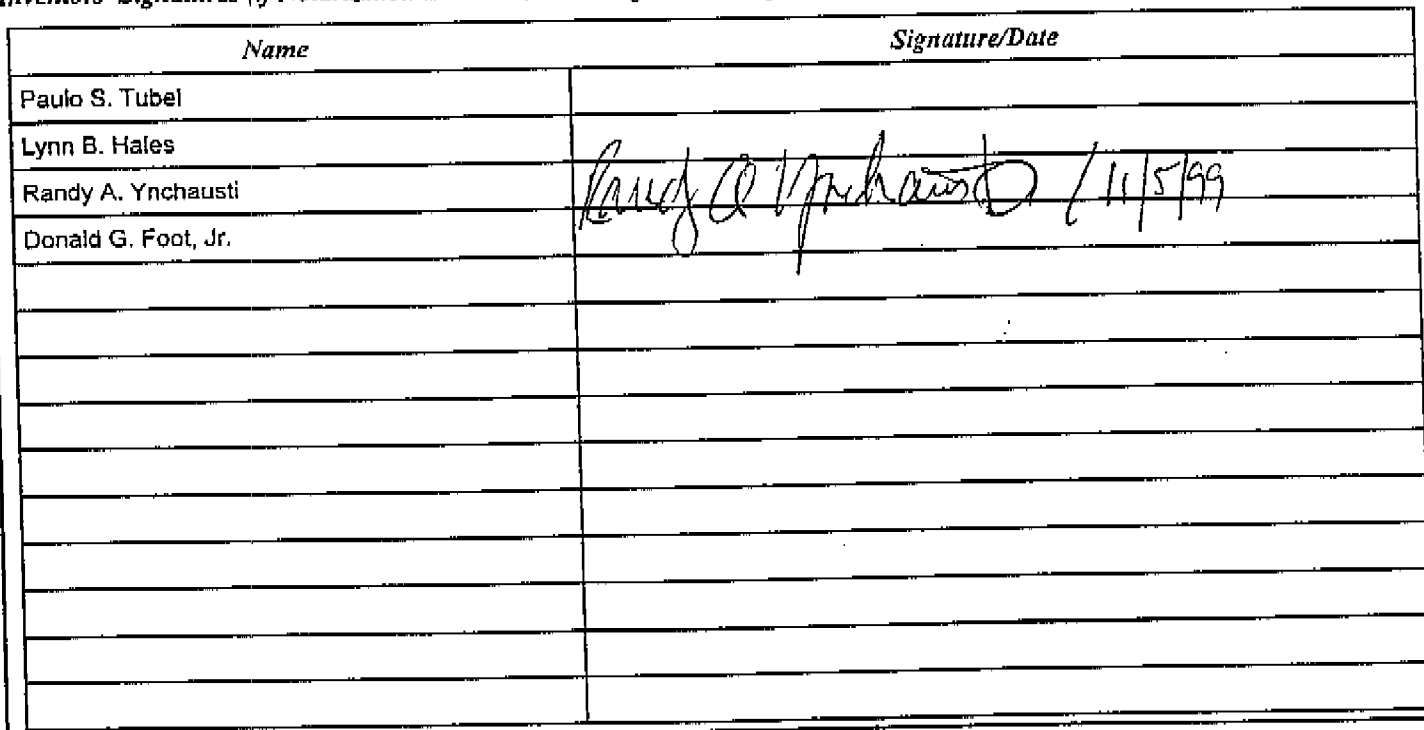 Name Signature/Date
Paulo S. Tubel
Lynn B. Hales
Randy A. Ynchausti Randy A Ynchausti / 11/5/99
Donald G. Foot, Jr.